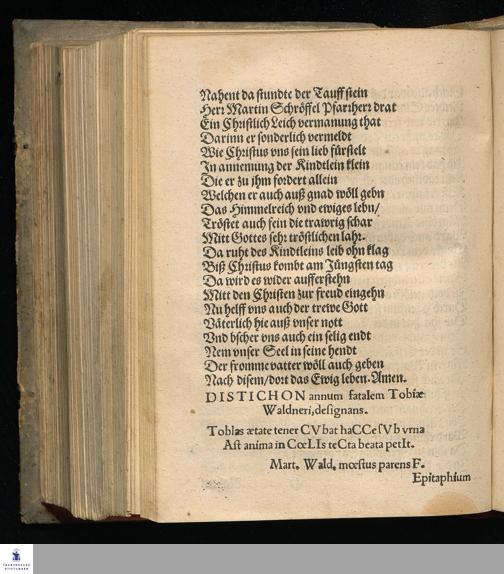 Nahent da stundte der Tauff stein
Herr Martin Schröffel Pfarrherr drat
Ein Christlich Leich vermanung that
Darinn er sonderlich vermeldt
Wie Christus vns sein lieb fürstelt
In annemung der Kindtlein klein
Die er zu jhm fordert allein
Welchen er auch auß gnad wöll gebn
Das Himmelreich vnd ewiges lebn/
Tröstet auch fein die trawrig schar
Mitt Gottes sehr tröstlichen lahr.
Da ruht des Kindtleins leib ohn klag
Biß Christus kombt am Jüngsten tag
Da wird es wider aufferstehn
Mitt den Christen zur freud eingehn
Nu helff vns auch der trewe Gott
Väterlich hie auß vnser nott
Vnd bscher vns auch ein selig endt
Nem vnser Seel in seine hendt
Der fromme vatter wöll auch geben
Nach disem/dort das Ewig leben. Amen.
DISTICHON annum fatalem Tobiæ
Waldneri, designans.
TobIas ætate tener CVbat haCCe sVb vrna
Ast anima in CœLIs teCta beata petIt.
Mart. Wald. mœstus parens F.
Epitaphium
FRANCKESCHE
STIFTUNGEN